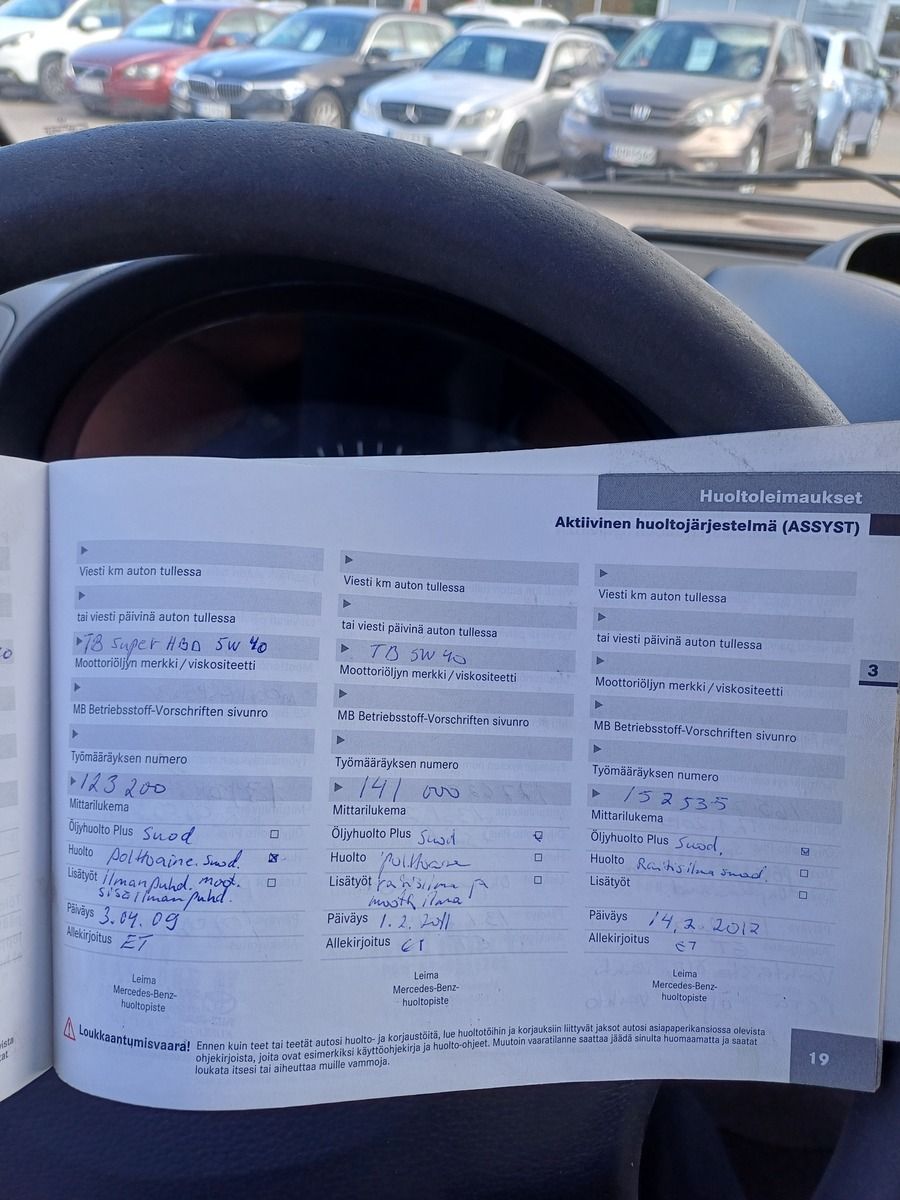 Huoltoleimaukset
Aktiivinen huoltojärjestelmä (ASSYST)
Viesti km auton tullessa
tai viesti päivinä auton tullessa
TB super HBD 5W 40
Moottoriöljyn merkki / viskositeetti
MB Betriebsstoff-Vorschriften sivunro
Työmääräyksen numero
123 200
Mittarilukema
Öljyhuolto Plus Suod
Huolto polttoaine. suod.
Lisätyöt ilmanpuhd. moot.
sisäilmanpuhd.
Päiväys 3.04.09
Allekirjoitus ET
Leima
Mercedes-Benz-
huoltopiste
Viesti km auton tullessa
tai viesti päivinä auton tullessa
TB 5W 40
Moottoriöljyn merkki / viskositeetti
MB Betriebsstoff-Vorschriften sivunro
Työmääräyksen numero
141 000
Mittarilukema
Öljyhuolto Plus Suod
Huolto polttoaine
Lisätyöt raitisilma ja
moott ilma
Päiväys 1.2.2011
Allekirjoitus ET
Leima
Mercedes-Benz-
huoltopiste
Viesti km auton tullessa
tai viesti päivinä auton tullessa
Moottoriöljyn merkki / viskositeetti
MB Betriebsstoff-Vorschriften sivunro
Työmääräyksen numero
152535
Mittarilukema
Öljyhuolto Plus Suod.
Huolto Raitisilma suod.
Lisätyöt
Päiväys 14.2.2012
Allekirjoitus ET
Leima
Mercedes-Benz-
huoltopiste
3
Loukkaantumisvaara! Ennen kuin teet tai teetät autosi huolto- ja korjaustöitä, lue huoltotöihin ja korjauksiin liittyvät jaksot autosi asiapaperikansiossa olevista
ohjekirjoista, joita ovat esimerkiksi käyttöohjekirja ja huolto-ohjeet. Muutoin vaaratilanne saattaa jäädä sinulta huomaamatta ja saatat
loukata itsesi tai aiheuttaa muille vammoja.
19